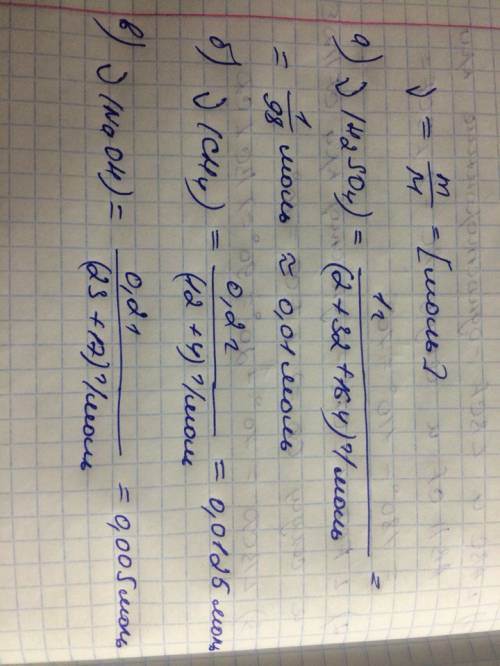 ν = m/M = [моль]
а) ν(H₂SO₄) = 1г/(2+32+16·4)г/моль =
= 1/98 моль ≈ 0,01 моль
б) ν(CH₄) = 0,2г/(12+4)г/моль = 0,0125 моль
в) ν(NaOH) = 0,2г/(23+17)г/моль = 0,005 моль